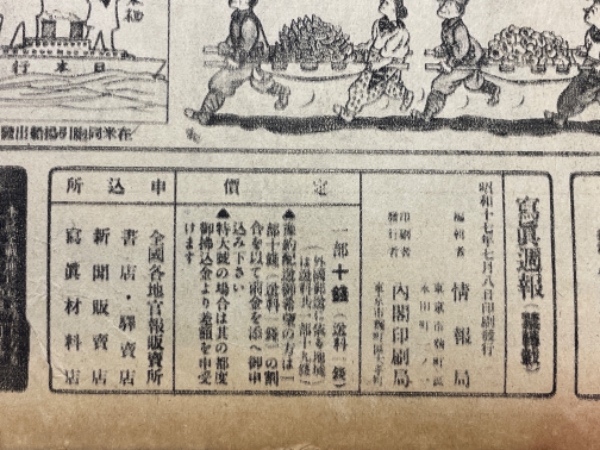 行米日
在米同胞引揚船出發
寫眞週報
昭和十七年七月八日印刷發行
編輯者
情報局
東京市麴町區
永田町二ノ一
印刷者
發行者
內閣印刷局
東京市麴町區大手町
定價
一部十錢（送料一錢）
（外國郵送に依る地域
は送料共一部十九錢）
▲豫約配送御希望の方は一
部十錢（送料一錢）の割
合を以て前金を添へ御申
込み下さい
▲特大號の場合は其の都度
御拂込金より差額を申受
けます
申込所
全國各地官報販賣所
書店・驛賣店
新聞販賣店
寫眞材料店